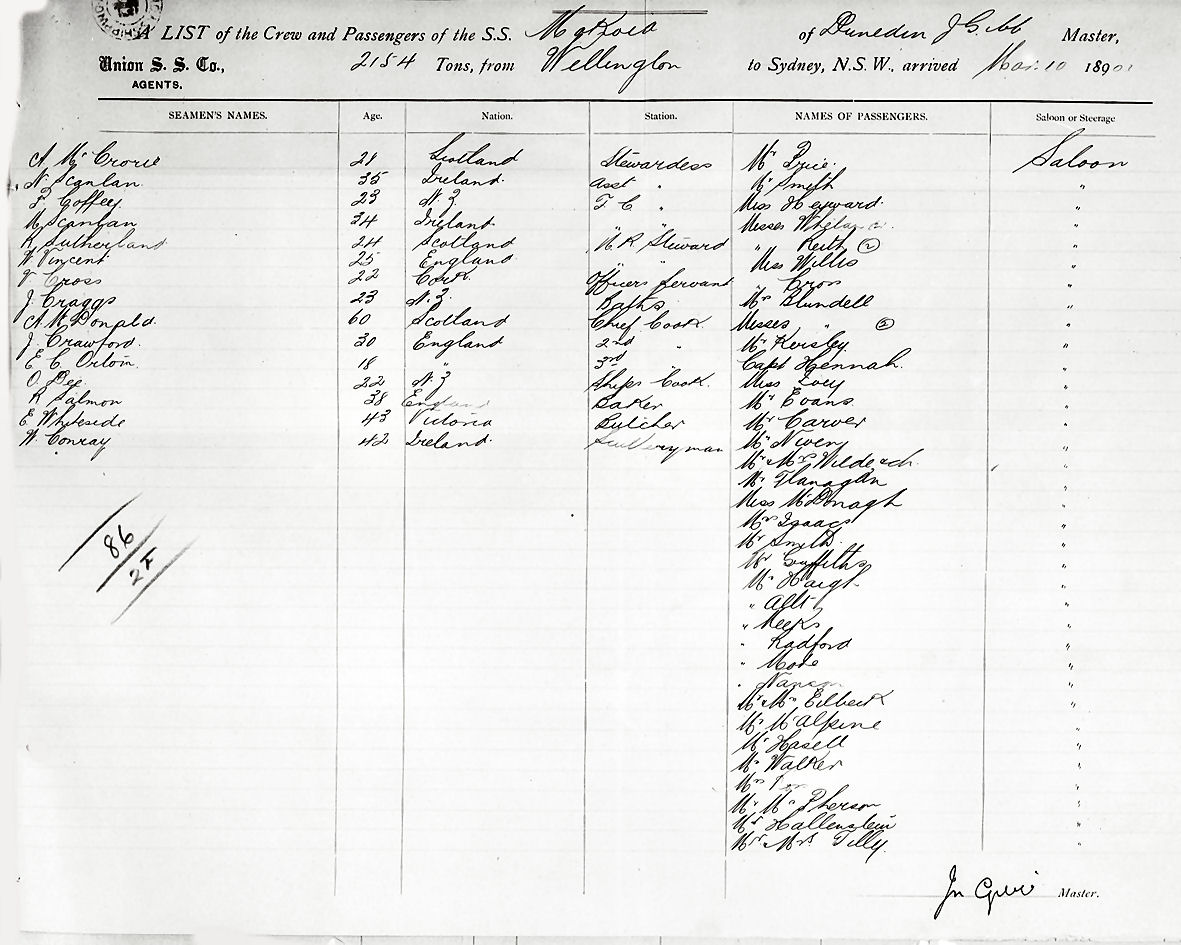 A LIST of the Crew and Passengers of the S.S. Mokoia of Dunedin J Gibb Master,
Union S. S. Co., 2154 Tons, from Wellington to Sydney, N.S.W., arrived Mar. 10 1890
AGENTS.
SEAMEN'S NAMES. Age. Nation. Station. NAMES OF PASSENGERS. Saloon or Steerage
A. McCrorie 21 Scotland Stewardess Mr Saloon
N. Scanlan 35 Ireland. Asst " Mr Smith "
Coffey 23 N.Z T C " Miss Heyward. "
M Scanlan 34 Ireland. " " Misses "
R Sutherland 24 Scotland Steward " Keith (2) "
W Vincent 25 England " Miss Willis "
Cross 22 Cork. Officers Servant " Cross "
J. Craggs 23 N.Z. Baths Mrs Blundell "
A. McDonald. 60 Scotland Chief Cook. Misses " "
J. Crawford. 30 England 2nd " Mr "
E. C. Orton. 18 " 3rd " Capt Hennah. "
O. Dee. 22 N.Z Ships Cook. Miss "
R Salmon 38 England Baker Mr Evans "
E Whiteside 43 Victoria Butcher Mr Carver "
W. Conray 42 Ireland. Scullery man Mr Niven "
Mr & Mrs "
Mr Flanagan "
Miss McDonagh "
Mrs Isaacs "
Mr Smith. "
Mr Griffiths "
Mr Haigh "
" "
" Meeks "
" Radford "
" "
" "
Mr & Mrs "
Mr McAlpine
Mr Hasell "
Mr Walker "
Mr "
Mr McPherson "
Mr Hallenstein "
Mr & Mrs Tilly. "
86
27
Master.